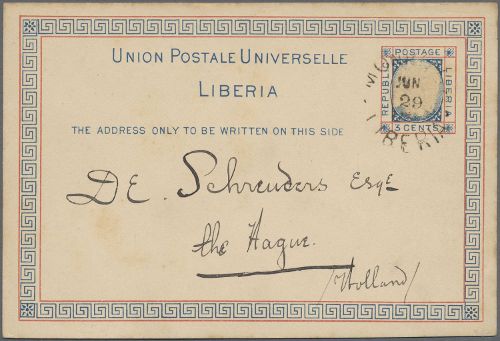 UNION POSTALE UNIVERSELLE
LIBERIA
THE ADDRESS ONLY TO BE WRITTEN ON THIS SIDE
POSTAGE
REPUBLIC
LIBERIA
3 CENTS
JUN
29
DE. Schreuders Esqe
the Hague.
/Holland/